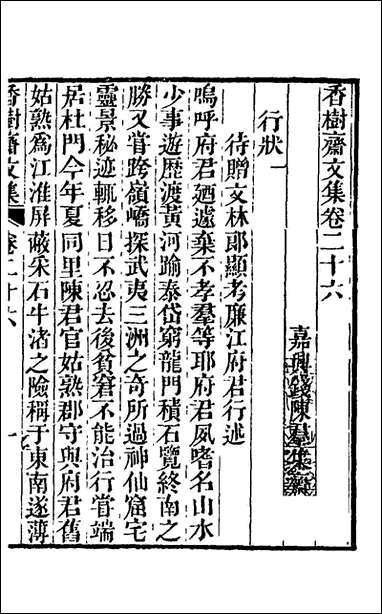 香樹齋文集卷二十六
嘉興錢陳羣集齋
行狀一
待贈文林郎顯考廉江府君行述
嗚呼府君廼遽棄不孝羣等耶府君夙嗜名山水
少事遊歷渡黃河踰泰岱窮龍門積石覽終南之
勝又嘗跨嶺嶠探武夷三洲之奇所過神仙窟宅
靈景秘迹輒移日不忍去後貧窘不能治行嘗端
居杜門今年夏同里陳君官姑熟郡守與府君舊
姑熟爲江淮屏蔽采石牛渚之險稱于東南遂薄
香樹齋文集
卷二十六
一